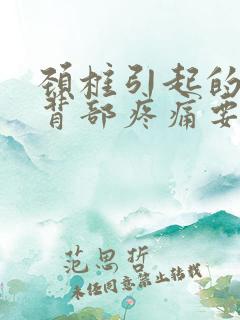 颈椎引起的
背部疼痛要
范思哲
未经同意禁止转载